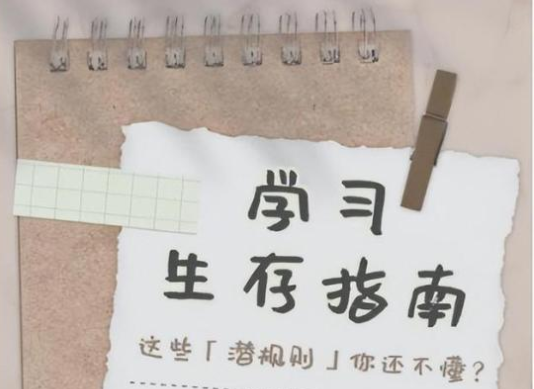 学习
生存指南
这些「潜规则」你还不懂？